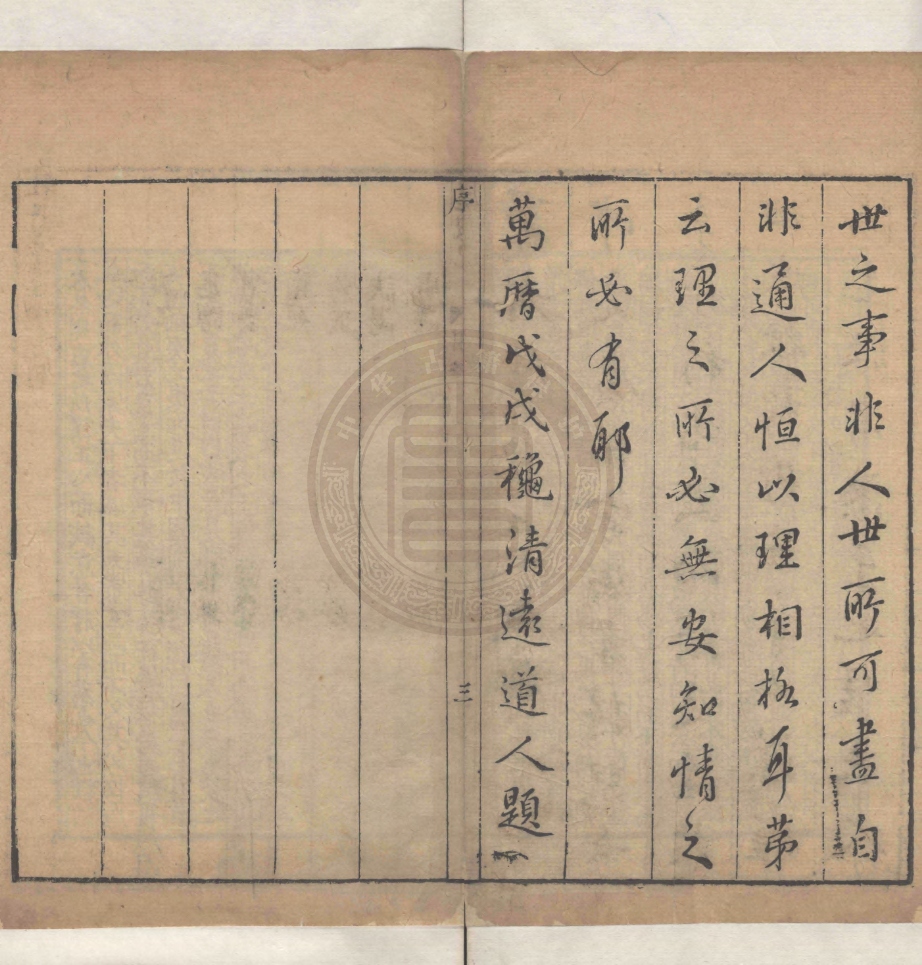 世之事非人世所可盡自
非通人恒以理相格耳第
云理之所必無安知情之
所必有耶
萬曆戊戌龝清遠道人題
序
三